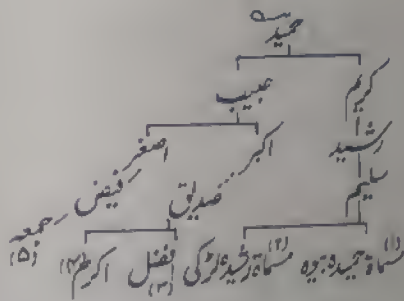 حمید
کریم حبیب
رشید اکبر اصغر
سلیم صدیق فیض جمعہ (۵)
(۱) مسماۃ حمیدہ بیوہ (۲) مسماۃ رشیدہ لڑکی (۳) افضل (۴) اکرم